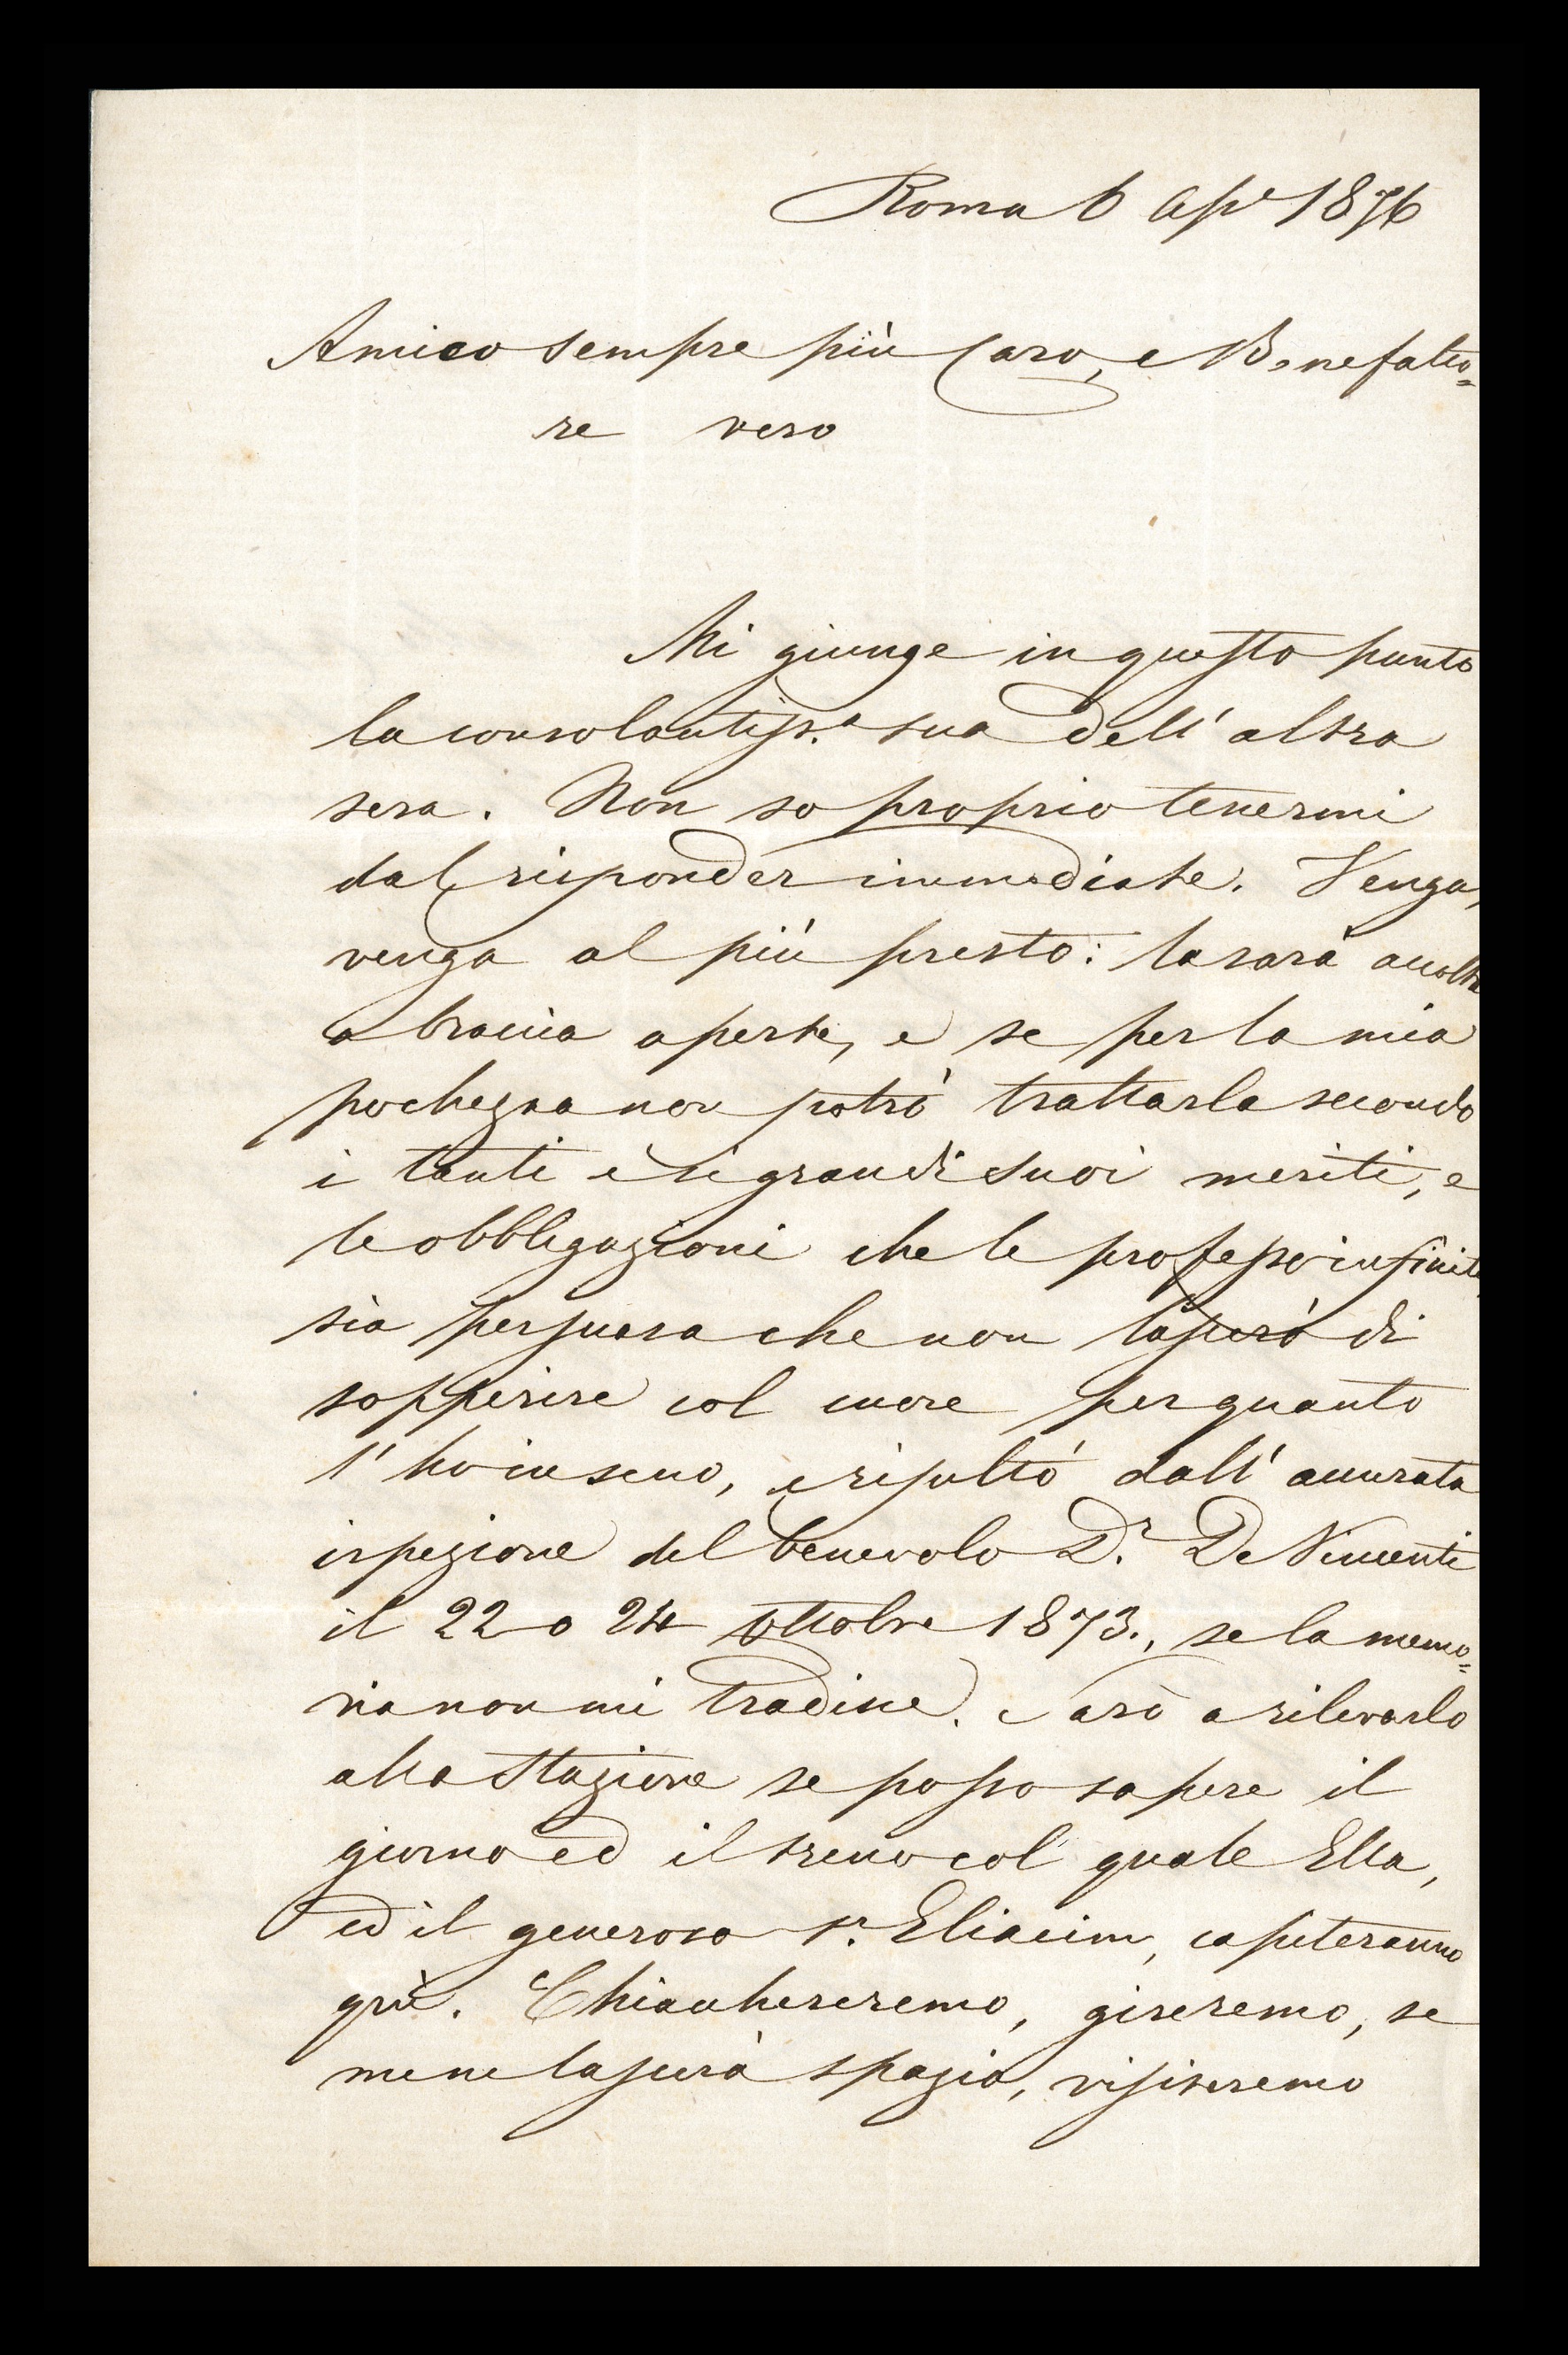 Roma 6 Ap.e 1876
Amico sempre più Caro, e Benefatto=
re vero
Mi giunge in questo punto
la consolantiss.a sua dell' altra
sera. Non so proprio tenermi
dal risponder immediate. Venga,
venga al più presto: la sarà accolta
a braccia aperte, e se per la mia
pochezza non potrò trattarla secondo
i tanti e sì grandi suoi meriti, e
le obbligazioni che le professo infinite
sia persuasa che non lascerò di
sopperire col cuore per quanto
l' ho in seno, e risultò dall' accurata
ispezione del benevolo D.r De Vincenti
il 22 o 24 Ottobre 1873., se la memo=
ria non mi tradisce. Sarò a rilevarlo
alla Stazione se posso sapere il
giorno ed il treno col quale Ella,
ed il generoso S.r Eliacim, capiteranno
quì. Chiacchereremo, gireremo, se
me ne lascerà spazio, visiteremo